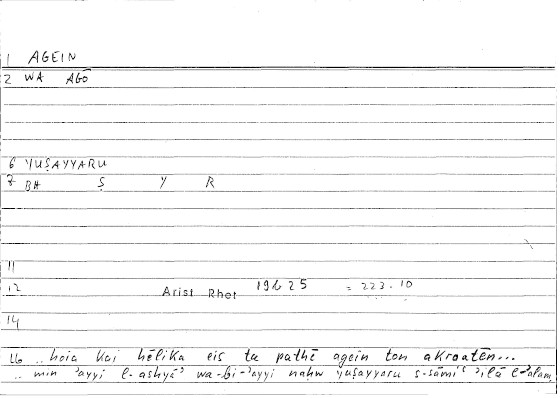 1 AGEIN
2 WA AGŌ
6 YUṢAYYARU
7 BH Ṣ Y R
11
12 Arist Rhet 19b25 = 223.10
14
16 ..hoia kai hēlika eis ta pathē agein ton akroatēn...
.. min ʾayyi l-ashyāʾ wa-bi-ʾayyi naḥw yuṣayyaru s-sāmiʿ ʾilā l-ʾalam